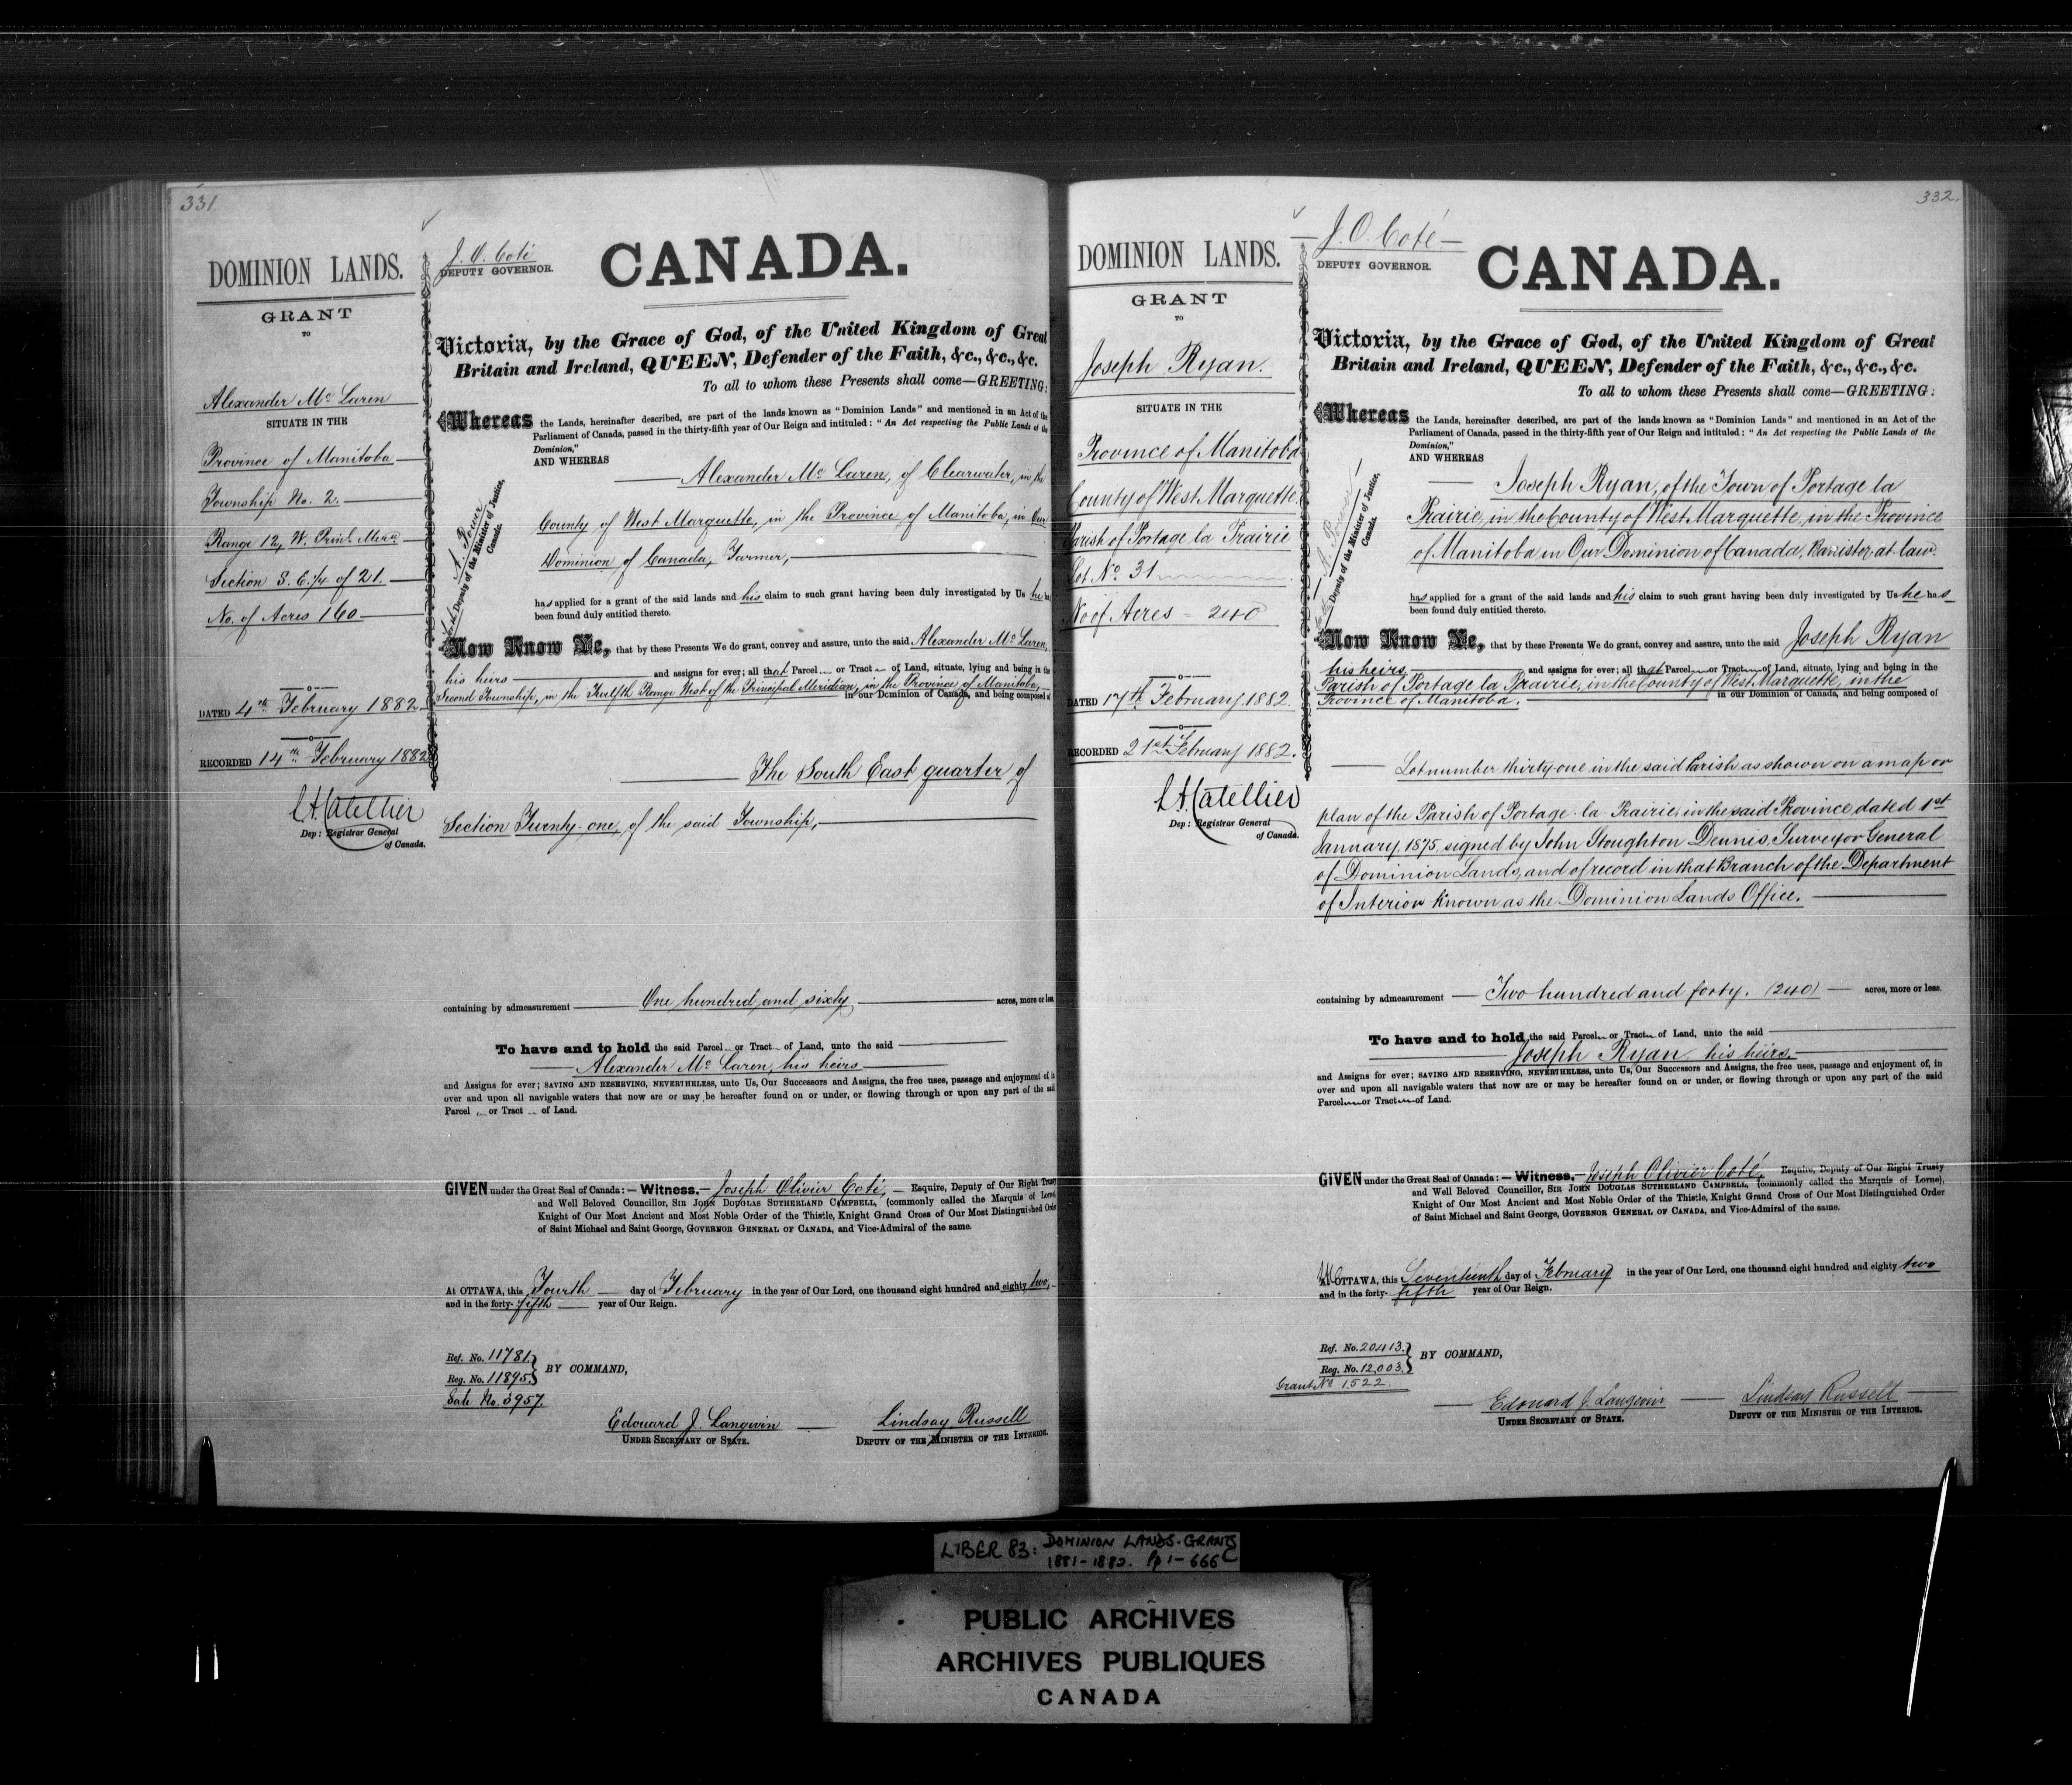 331
DOMINION LANDS.
GRANT
TO
Alexander Mc Laren
SITUATE IN THE
Province of Manitoba
Township No. 2.
Range 12, W. Prin. Mern.
Section S. E. 1/4 of 21.
No. of Acres 160
DATED 4th February 1882
RECORDED 14th February 1882
L.A. Catellier
Dep: Registrar General
of Canada.
J. O. Coté
DEPUTY GOVERNOR.
CANADA.
Victoria, by the Grace of God, of the United Kingdom of Great
Britain and Ireland, QUEEN, Defender of the Faith, &c., &c., &c.
To all to whom these Presents shall come—GREETING:
Whereas the Lands, hereinafter described, are part of the lands known as "Dominion Lands" and mentioned in an Act of the
Parliament of Canada, passed in the thirty-fifth year of Our Reign and intituled: "An Act respecting the Public Lands of the
Dominion,"
AND WHEREAS
Alexander Mc Laren, of Clearwater, in the
County of West Marquette, in the Province of Manitoba, in Our
Dominion of Canada, Farmer,
A. Power
Deputy of the Minister of Justice,
Canada.
has applied for a grant of the said lands and his claim to such grant having been duly investigated by Us he has
been found duly entitled thereto.
Now Know Ye, that by these Presents We do grant, convey and assure, unto the said Alexander Mc Laren,
his heirs and assigns for ever; all that Parcel or Tract of Land, situate, lying and being in the
Second Township, in the Twelfth Range West of the Principal Meridian, in the Province of Manitoba,
in our Dominion of Canada, and being composed of
The South East quarter of
Section Twenty-one, of the said Township,
containing by admeasurement One hundred and sixty acres, more or less
To have and to hold the said Parcel or Tract of Land, unto the said
Alexander Mc Laren, his heirs
and Assigns for ever; SAVING AND RESERVING, NEVERTHELESS, unto Us, Our Successors and Assigns, the free uses, passage and enjoyment of, in
over and upon all navigable waters that now are or may be hereafter found on or under, or flowing through or upon any part of the said
Parcel or Tract of Land.
GIVEN under the Great Seal of Canada:—Witness,—Joseph Olivier Coté,—Esquire, Deputy of Our Right Trusty
and Well Beloved Councillor, SIR JOHN DOUGLAS SUTHERLAND CAMPBELL, (commonly called the Marquis of Lorne),
Knight of Our Most Ancient and Most Noble Order of the Thistle, Knight Grand Cross of Our Most Distinguished Order
of Saint Michael and Saint George, GOVERNOR GENERAL OF CANADA, and Vice-Admiral of the same.
At OTTAWA, this Fourth day of February in the year of Our Lord, one thousand eight hundred and eighty two,
and in the forty-fifth year of Our Reign.
Ref. No. 11781.
Reg. No. 11895.
BY COMMAND,
Sale No. 3957.
Edouard J. Langevin
UNDER SECRETARY OF STATE.
Lindsay Russell
DEPUTY OF THE MINISTER OF THE INTERIOR.
332.
DOMINION LANDS.
GRANT
TO
Joseph Ryan.
SITUATE IN THE
Province of Manitoba
County of West Marquette
Parish of Portage la Prairie
Lot No. 31
No of Acres - 240
DATED 17th February 1882.
RECORDED 21st February 1882.
L.A. Catellier
Dep: Registrar General
of Canada.
J. O. Coté
DEPUTY GOVERNOR.
CANADA.
Victoria, by the Grace of God, of the United Kingdom of Great
Britain and Ireland, QUEEN, Defender of the Faith, &c., &c., &c.
To all to whom these Presents shall come—GREETING:
Whereas the Lands, hereinafter described, are part of the lands known as "Dominion Lands" and mentioned in an Act of the
Parliament of Canada, passed in the thirty-fifth year of Our Reign and intituled: "An Act respecting the Public Lands of the
Dominion,"
AND WHEREAS
Joseph Ryan, of the Town of Portage la
Prairie, in the County of West Marquette, in the Province
of Manitoba in Our Dominion of Canada, Barrister-at-law.
A. Power
Deputy of the Minister of Justice,
Canada.
has applied for a grant of the said lands and his claim to such grant having been duly investigated by Us he has
been found duly entitled thereto.
Now Know Ye, that by these Presents We do grant, convey and assure, unto the said Joseph Ryan
his heirs and assigns for ever; all that Parcel or Tract of Land, situate, lying and being in the
Parish of Portage la Prairie, in the County of West Marquette, in the
Province of Manitoba. in our Dominion of Canada, and being composed of
Lot number thirty-one in the said Parish as shown on a map or
plan of the Parish of Portage-la Prairie, in the said Province, dated 1st
January, 1875, signed by John Stoughton Dennis, Surveyor General
of Dominion Lands, and of record in that Branch of the Department
of Interior known as the Dominion Lands Office.
containing by admeasurement Two hundred and forty. (240) acres, more or less.
To have and to hold the said Parcel or Tract of Land, unto the said
Joseph Ryan his heirs,
and Assigns for ever; SAVING AND RESERVING, NEVERTHELESS, unto Us, Our Successors and Assigns, the free uses, passage and enjoyment of, in
over and upon all navigable waters that now are or may be hereafter found on or under, or flowing through or upon any part of the said
Parcel or Tract of Land.
GIVEN under the Great Seal of Canada:—Witness,—Joseph Olivier Coté, Esquire, Deputy of Our Right Trusty
and Well Beloved Councillor, SIR JOHN DOUGLAS SUTHERLAND CAMPBELL, (commonly called the Marquis of Lorne),
Knight of Our Most Ancient and Most Noble Order of the Thistle, Knight Grand Cross of Our Most Distinguished Order
of Saint Michael and Saint George, GOVERNOR GENERAL OF CANADA, and Vice-Admiral of the same.
At OTTAWA, this Seventeenth day of February in the year of Our Lord, one thousand eight hundred and eighty two
and in the forty-fifth year of Our Reign.
Ref. No. 20413.
Reg. No. 12,003.
BY COMMAND,
Grant No 1522.
Edouard J. Langevin
UNDER SECRETARY OF STATE.
Lindsay Russell
DEPUTY OF THE MINISTER OF THE INTERIOR.
LIBER 83: DOMINION LANDS-GRANTS
1881-1882. Pp 1-666
PUBLIC ARCHIVES
ARCHIVES PUBLIQUES
CANADA